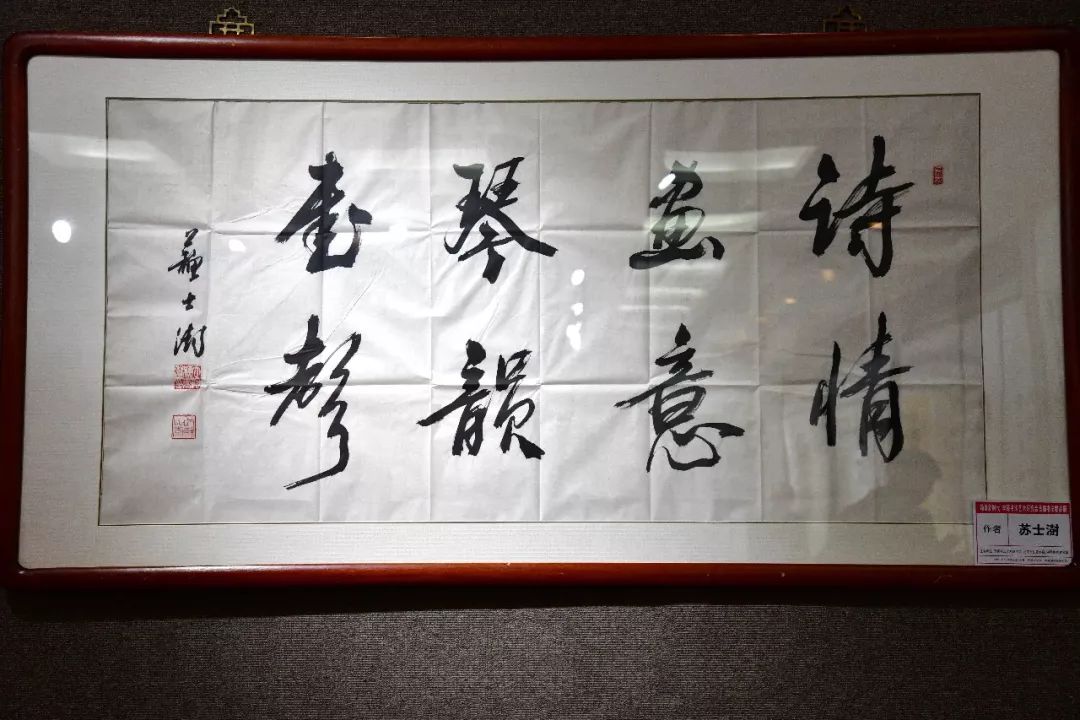 詩情
畫意
琴韻
書聲
蘇士澍
作者
苏士澍